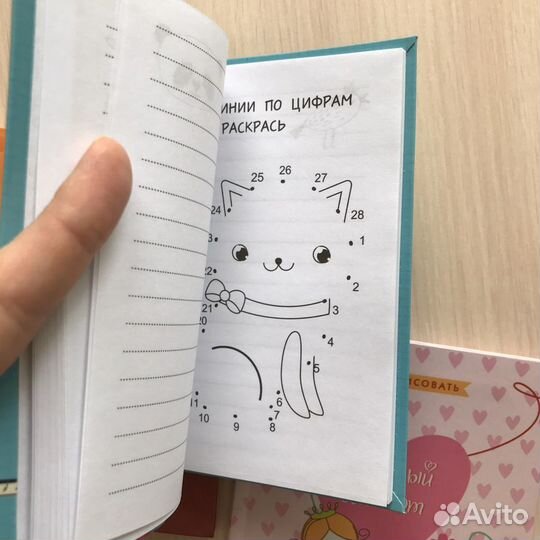 ИНИИ ПО ЦИФРАМ
РАСКРАСЬ
25 26 27
24 28
3 1
22 2
21 3
20 4
5
11 6
10 9 8 7
ИСОВАТЬ
ЫЙ
Avito